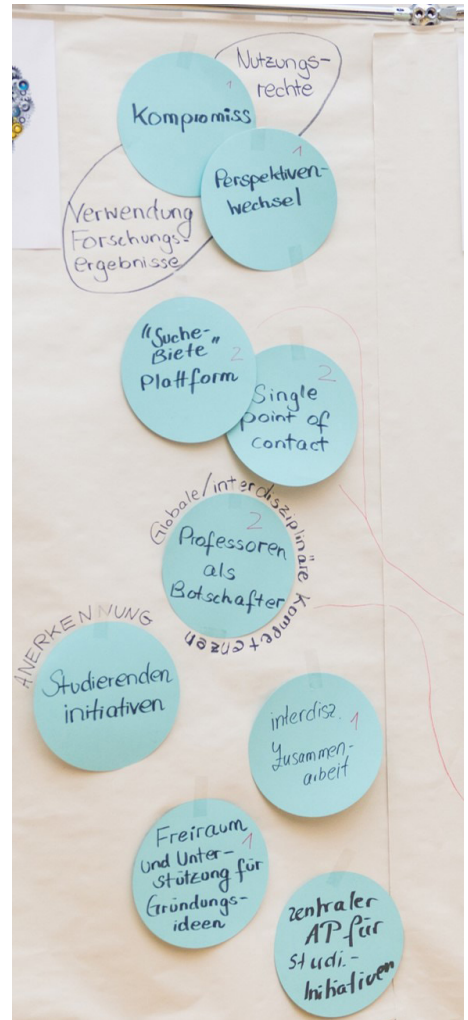 Nutzungs-
rechte
1
Kompromiss
1
Perspektiven-
wechsel
Verwendung
Forschungs-
ergebnisse
"Suche-
Biete"
2
Plattform
2
Single
point of
contact
Globale/interdisziplinäre Kompetenzen
2
Professoren
als
Botschafter
ANERKENNUNG
Studierenden
initiativen
interdisz.
1
Zusammen-
arbeit
Freiraum
1
und Unter-
stützung für
Gründungs-
ideen
zentraler
AP für
Studi.-
Initiativen